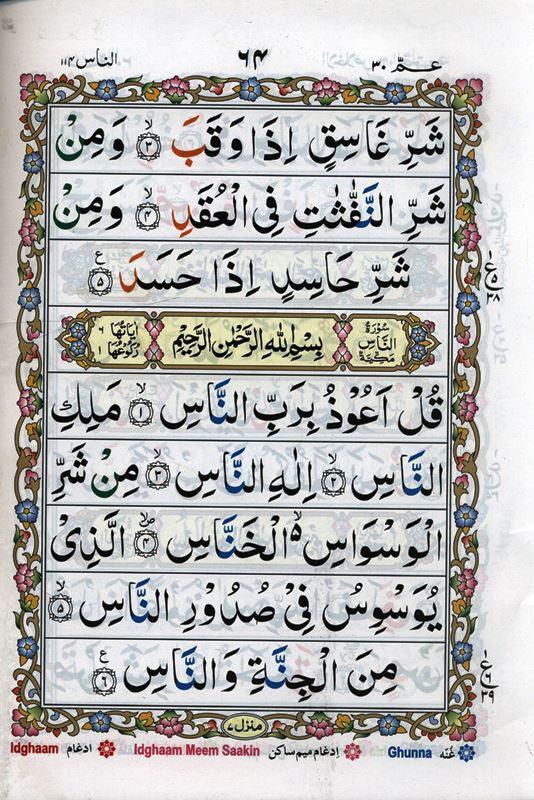 عـمّ ۳۰ ۶۴ الناس ۱۱۴
شَرِّ غَاسِقٍ اِذَا وَقَبَ ۙ﴿۳﴾ وَمِنْ
شَرِّ النَّفّٰثٰتِ فِی الْعُقَدِ ۙ﴿۴﴾ وَمِنْ
شَرِّ حَاسِدٍ اِذَا حَسَدَ ﴿۵﴾ ع
ع ۵ ۳۸
سُوْرَةُ النَّاسِ مَكِّيَّةٌ بِسْمِ اللّٰهِ الرَّحْمٰنِ الرَّحِيْمِ اٰيَاتُهَا ۶ رُكُوْعُهَا ۱
قُلْ اَعُوْذُ بِرَبِّ النَّاسِ ۙ﴿۱﴾ مَلِكِ
النَّاسِ ۙ﴿۲﴾ اِلٰهِ النَّاسِ ۙ﴿۳﴾ مِنْ شَرِّ
الْوَسْوَاسِ ۬ۙ الْخَنَّاسِ ۪ۙ﴿۴﴾ الَّذِیْ
يُوَسْوِسُ فِیْ صُدُوْرِ النَّاسِ ۙ﴿۵﴾
مِنَ الْجِنَّةِ وَالنَّاسِ ﴿۶﴾ ع
ع ۶ ۳۹
منزل ۷
غُنّه Ghunna اِدغام میم ساکن Idghaam Meem Saakin ادغام Idghaam